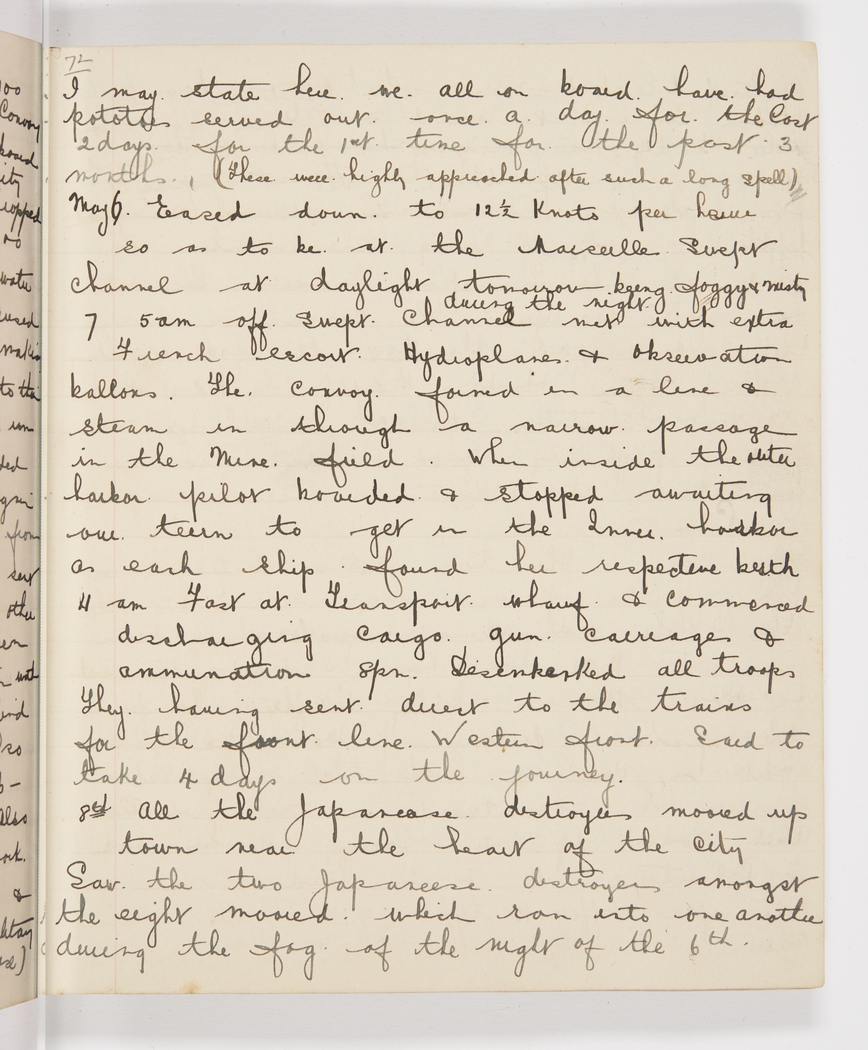 72
I may. state here. we. all on board. have. had
potatoes served out. once. a. day. for. the Last
2 days. for the 1st. time for. the past. 3
months. , (These were. highly appreached after such a long spell)
May 6. Eased down. to 12½ Knots per hour
so as to be. at. the Marseille. Swept
channel at daylight tomorrow being foggy & misty
during the night.
7 5 am off. Swept. Channel met with extra
French escort. Hydroplanes. & Observation
ballons. The. convoy. formed in a line &
steam in through a narrow. passage
in the Mine. field. When inside the outer
harbor. pilot boarded. & stopped awaiting
our. turn to get in the Inner. harbor
as each ship. found her respective berth
4 am Fast at. Transport. wharf. & commenced
discharging cargo. gun. carriages &
ammunation 8 pm. Disembarked all troops
They. having sent. direct to the trains
for the front. line. Western front. Said to
take 4 days on the journey.
8th All the Japanease. destroyers moored up
town near. the heart of the City
Saw. the two Japaneese. destroyers amongst
the eight moored. which ran into one another
during the fog. of the night of the 6th.